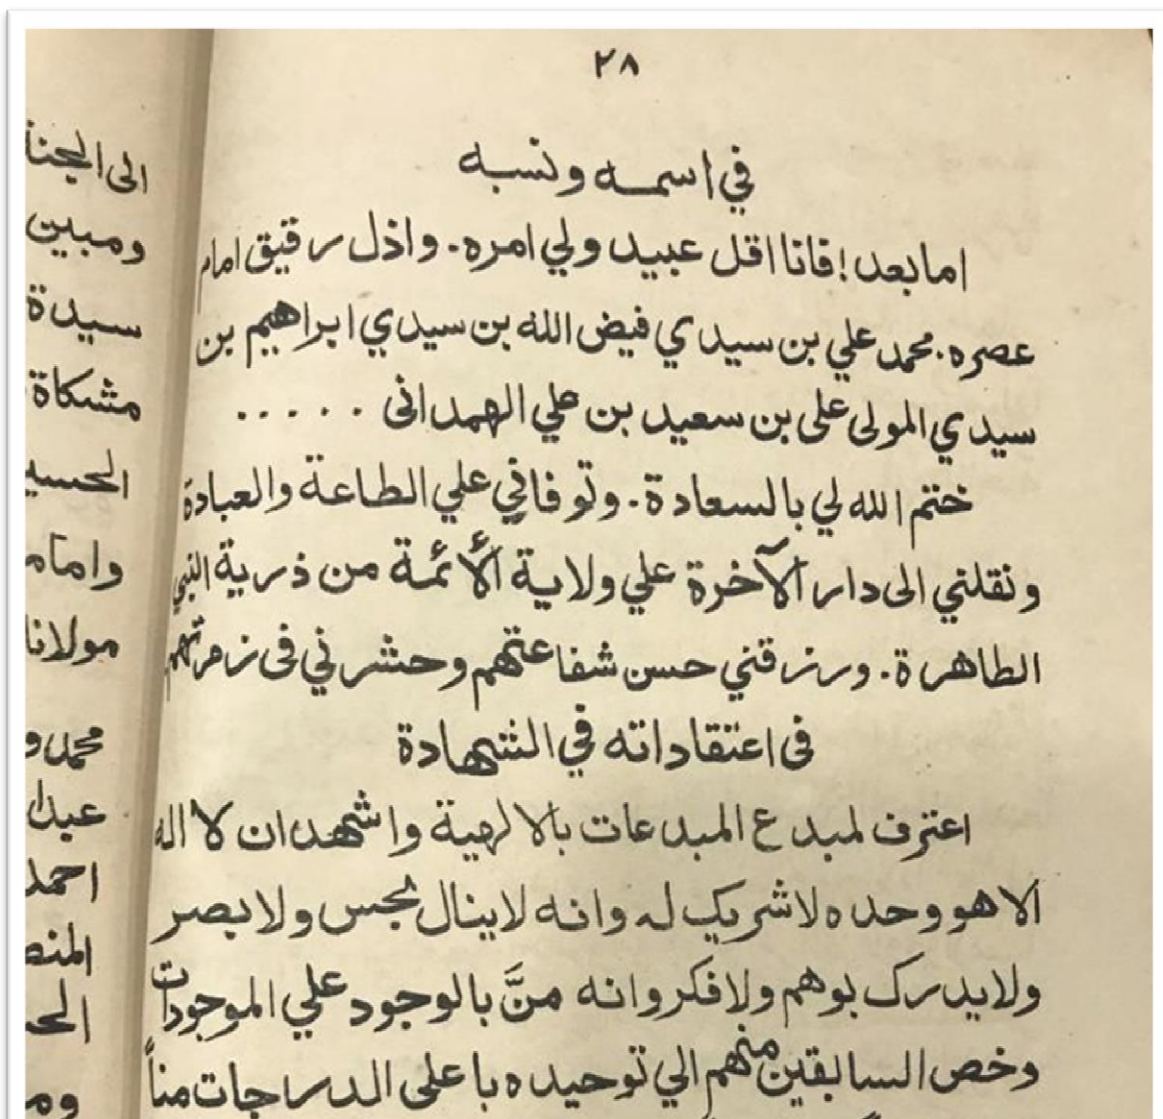 ٢٨
في اسمه ونسبه
اما بعد! فانا اقل عبيد ولي امره. واذل رقيق امام
عصره. محمد علي بن سيدي فيض الله بن سيدي ابراهيم بن
سيدي المولى على بن سعيد بن علي الهمدانى . . . . .
ختم الله لي بالسعادة. وتوفاني علي الطاعة والعبادة
ونقلني الى دار الآخرة علي ولاية الأئمة من ذرية النبي
الطاهرة. ورزقني حسن شفاعتهم وحشرني فى زمرتهم
فى اعتقاداته في الشهادة
اعترف لمبدع المبدعات بالالهية واشهد ان لا اله
الا هو وحده لا شريك له وانه لا ينال بحس ولا بصر
ولا يدرك بوهم ولا فكر وانه منَّ بالوجود علي الموجودات
وخص السابقين منهم الي توحيده باعلى الدراجات مناً
الى الجنة
ومبين
سيدة
مشكاة
الحسي
واماما
مولانا
محمد و
عبدا
احمد
المنص
الح
وم